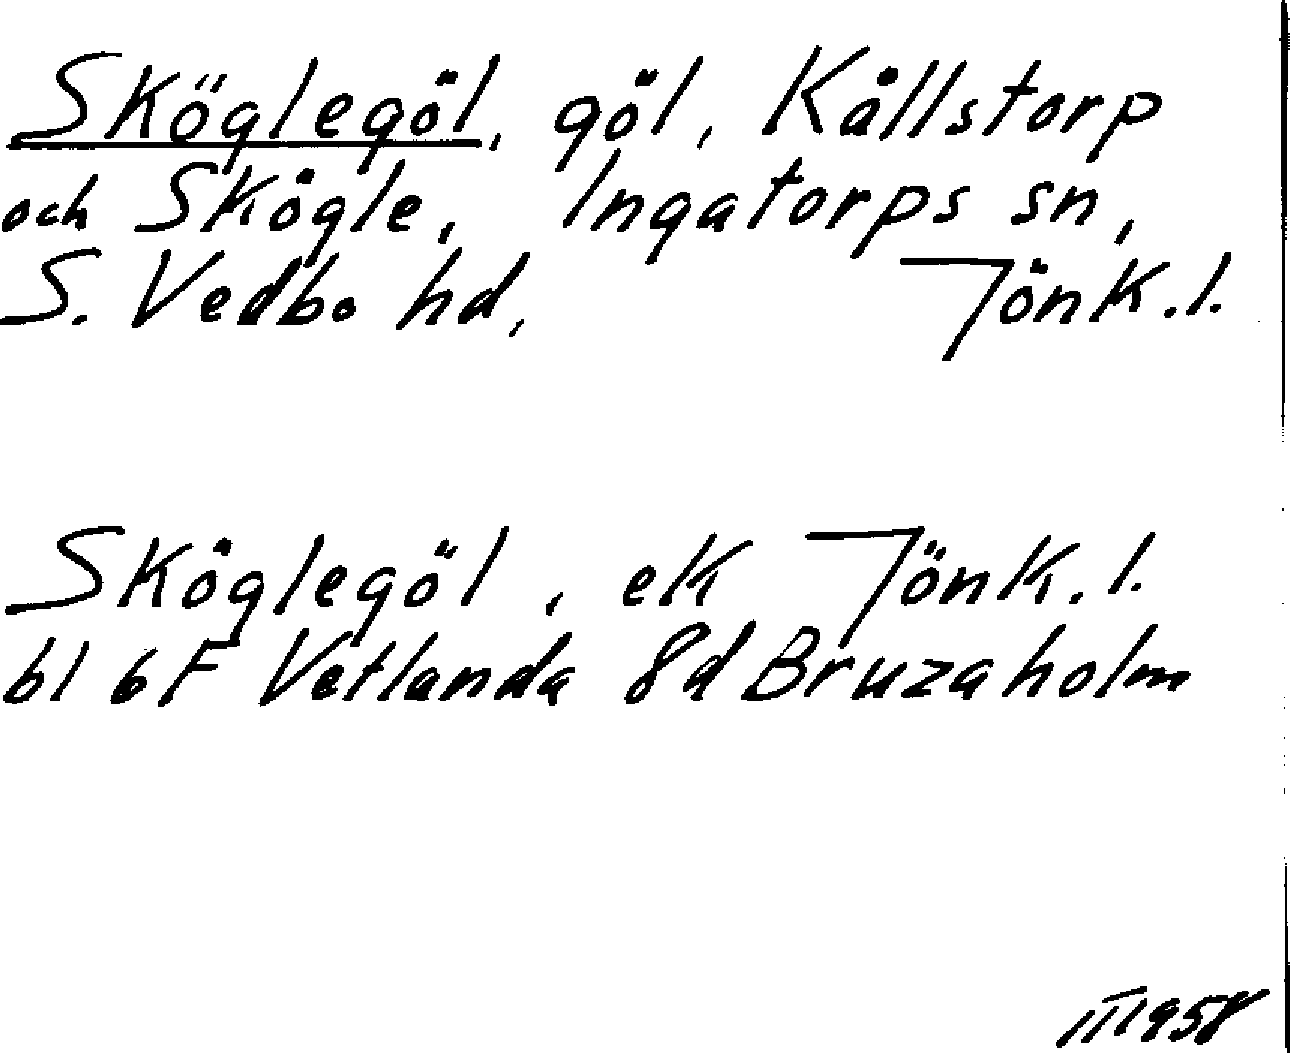 Sköglegöl, göl, Källstorp
och Skögle, Ingatorps sn,
S. Vedbo hd, Jönk.l.
Sköglegöl, ek Jönk.l.
bl 6F Vetlanda 8d Bruzaholm